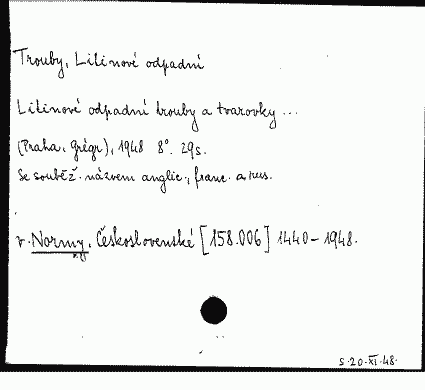 Trouby, Litinové odpadní
Litinové odpadní trouby a tvarovky ...
(Praha, Grégr), 1948 8°. 29s.
Se souběž. názvem anglic., franc. a rus.
v. Normy, Československé [158.006] 1440-1948.
5.20.XI.48.